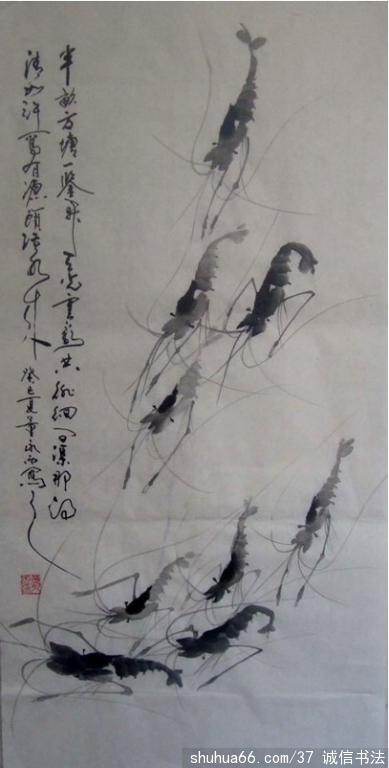 半畝方塘一鑒開天光雲影共徘徊問渠那得
清如許為有源頭活水來
癸巳夏 寫
shuhua66.com/37 诚信书法